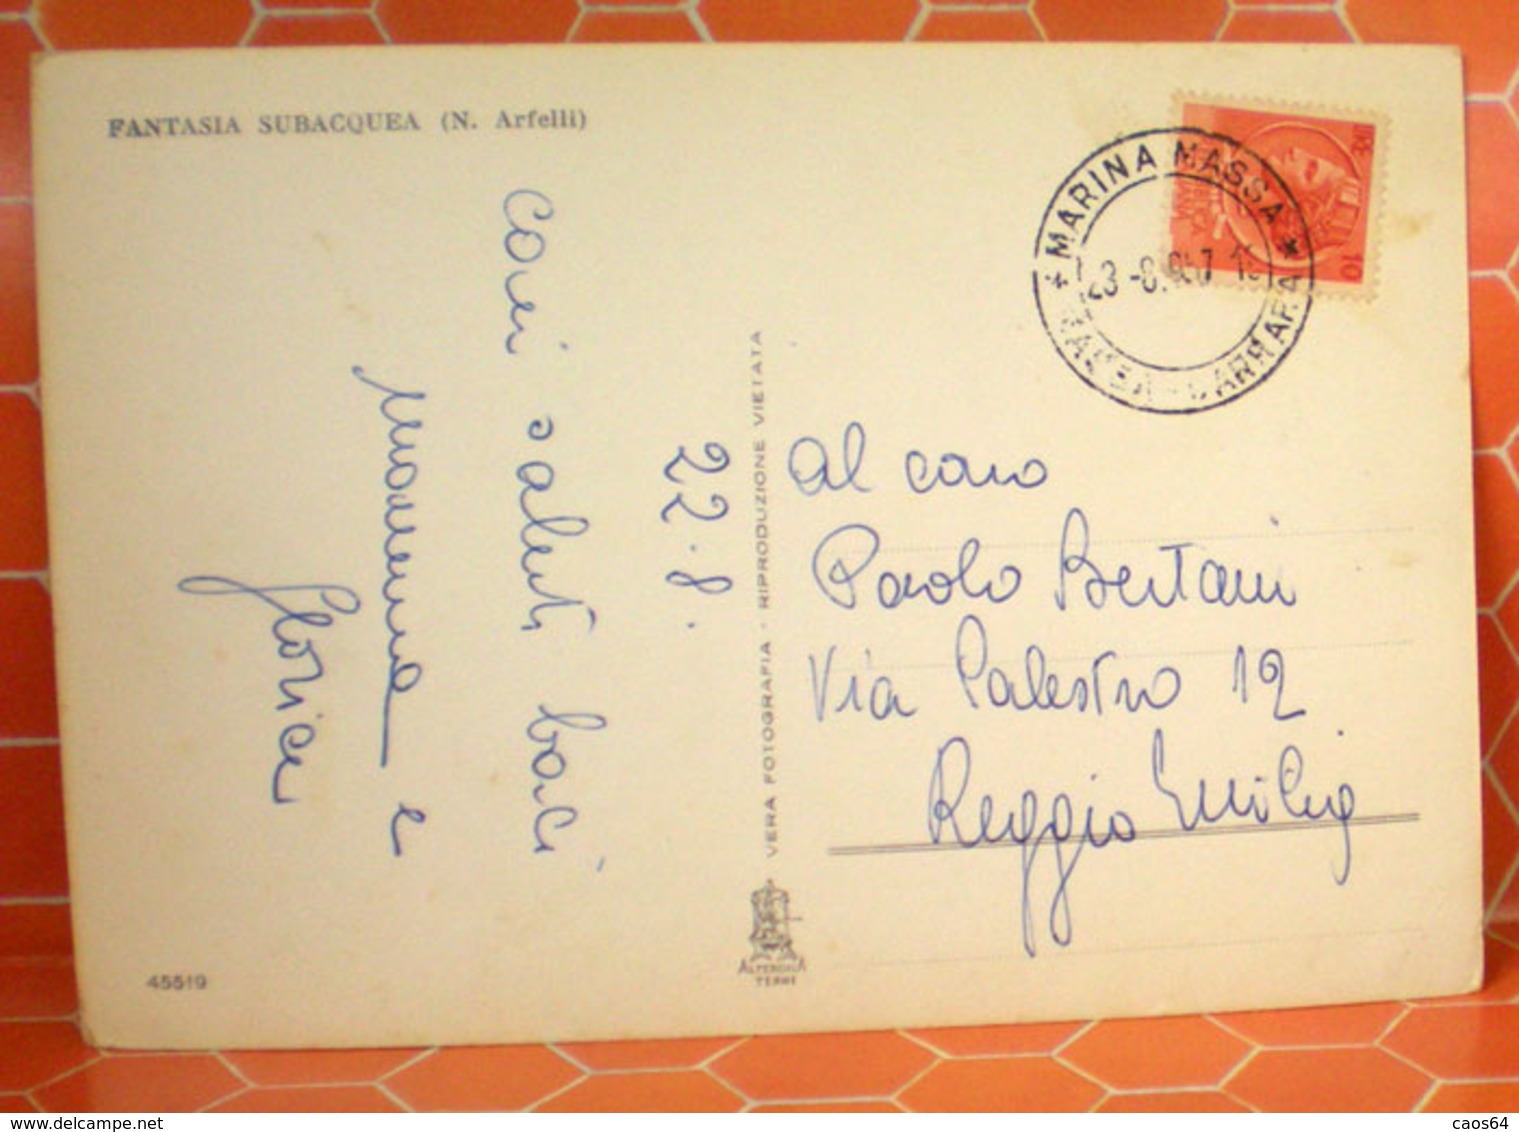 FANTASIA SUBACQUEA (N. Arfelli)
22.8.
Cari saluti baci
Mamma e
Glorice
VERA FOTOGRAFIA - RIPRODUZIONE VIETATA
45519
TERNI
MARINA MASSA
MASSA-CARRARA
23 -8.957
LIRE 10
al caro
Paolo Bertani
Via Palestro 12
Reggio Emilia
www.delcampe.net
caos64